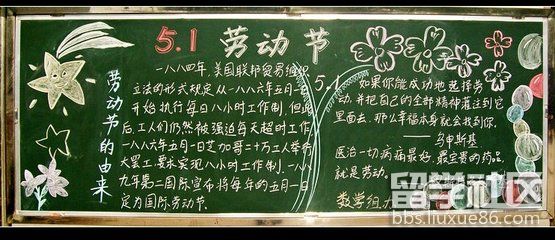 5.1 劳动节
劳动节的由来
一八八四年，美国联邦贸易组织
立法的形式规定从一八八六年五月一日
开始执行每日八小时工作制，但此
后，工人们仍然被强迫每天超时工作
一八八六年五月一日芝加哥二十万工人举行
大罢工，要求实现八小时工作制，一八八
九年第二国际宣布将每年的五月一日
定为国际劳动节。
5.1
如果你能成功地选择劳
动，并把自己的全部精神灌注到它
里面去，那么幸福本身就会找到你。
——乌申斯基
医治一切病痛最好，最宝贵的药品，
就是劳动。
数学组
留学社区
bbs.liuxue86.com